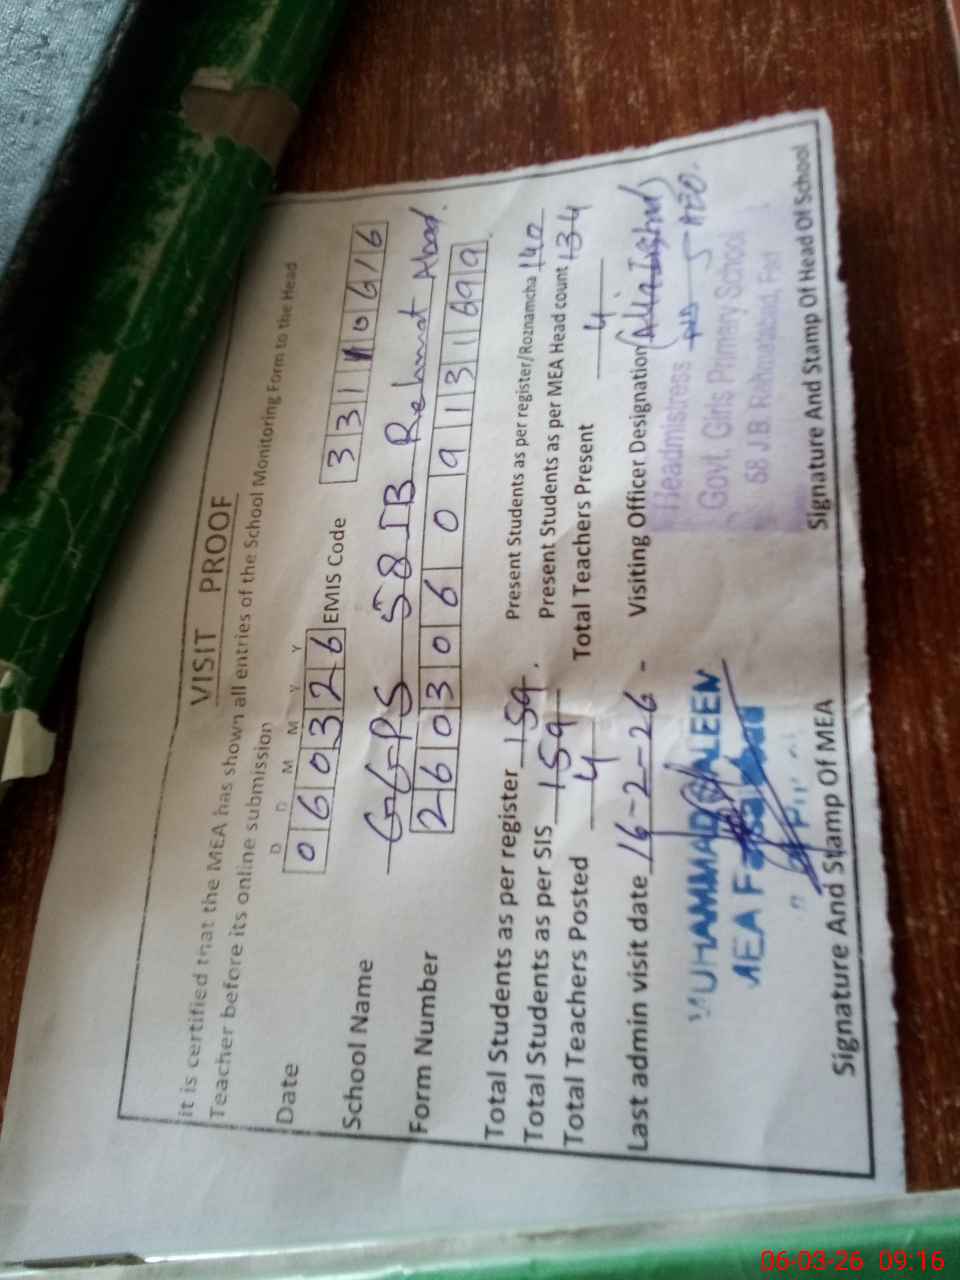 VISIT PROOF
it is certified that the MEA has shown all entries of the School Monitoring Form to the Head
Teacher before its online submission
D D M M Y Y
Date 060326 EMIS Code 33110616
School Name GGPS 58 JB Rehmat Abad.
Form Number 26030609131699
Total Students as per register 159 Present Students as per register/Roznamcha 140
Total Students as per SIS 159 Present Students as per MEA Head count 134
Total Teachers Posted 4 Total Teachers Present 4
Last admin visit date 16-2-26 - Visiting Officer Designation AEO.
MUHAMMAD
MEA
Headmistress
Govt. Girls Primary School
58 J.B. Rehmatabad, Fsd
Signature And Stamp Of MEA Signature And Stamp Of Head Of School
06-03-26 09:16